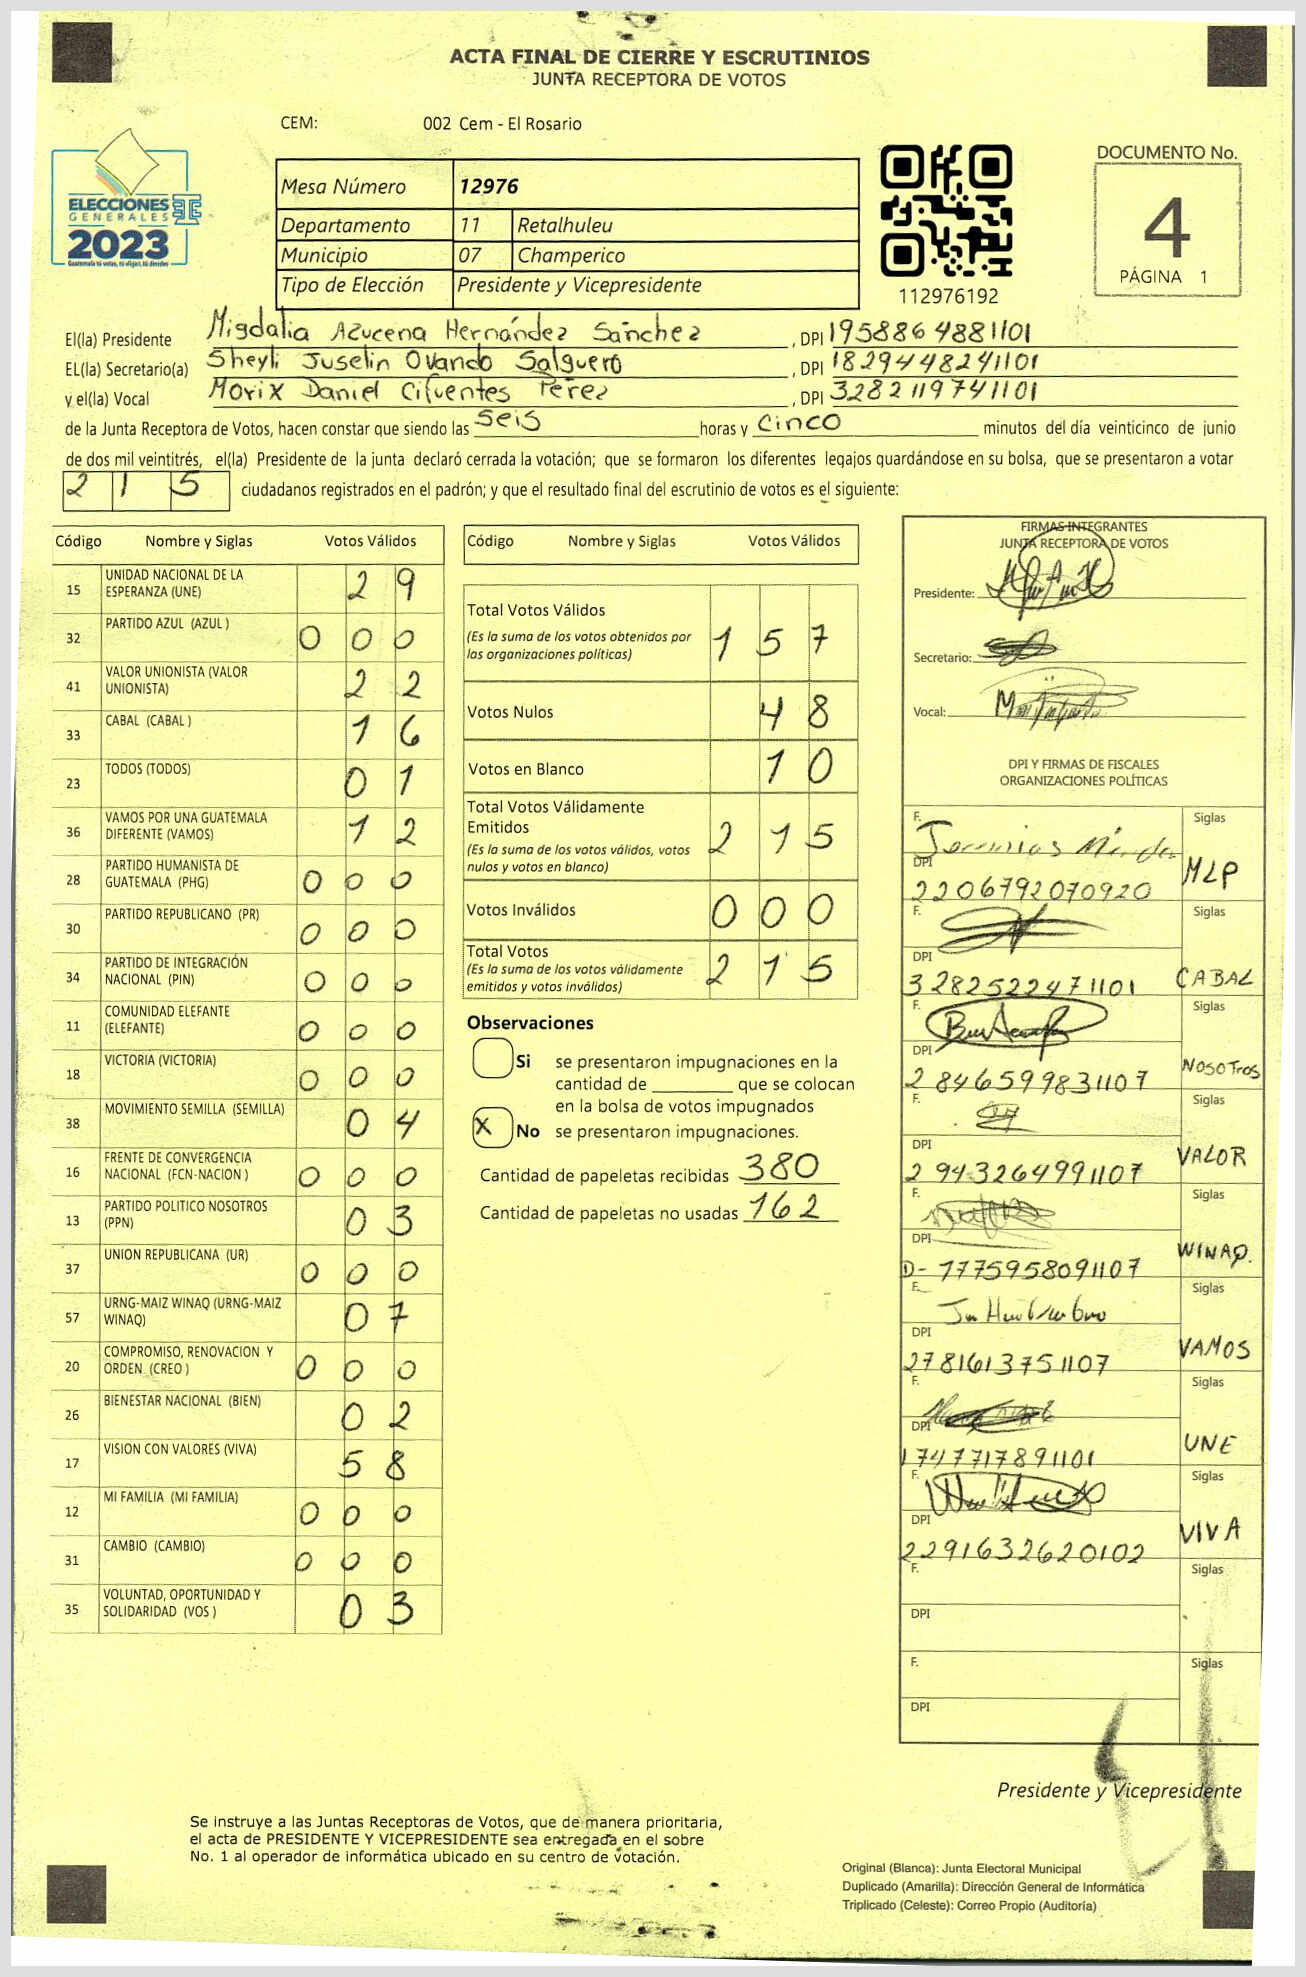 ACTA FINAL DE CIERRE Y ESCRUTINIOS
JUNTA RECEPTORA DE VOTOS
CEM: 002 Cem - El Rosario
ELECCIONES
GENERALES
2023
Guatemala tú votas, tú eliges, tú decides
Mesa Número 12976
Departamento 11 Retalhuleu
Municipio 07 Champerico
Tipo de Elección Presidente y Vicepresidente
112976192
DOCUMENTO No.
4
PÁGINA 1
El(la) Presidente Migdalia Azucena Hernández Sánchez, DPI 1958864881101
EL(la) Secretario(a) Sheyli Juselin Ovando Salguero, DPI 1829448241101
y el(la) Vocal Morix Daniel Cifuentes Pérez, DPI 3282119741101
de la Junta Receptora de Votos, hacen constar que siendo las seis horas y cinco minutos del día veinticinco de junio
de dos mil veintitrés, el(la) Presidente de la junta declaró cerrada la votación; que se formaron los diferentes legajos guardándose en su bolsa, que se presentaron a votar
2 1 5 ciudadanos registrados en el padrón; y que el resultado final del escrutinio de votos es el siguiente:
Código Nombre y Siglas Votos Válidos
15 UNIDAD NACIONAL DE LA ESPERANZA (UNE) 2 9
32 PARTIDO AZUL (AZUL ) 0 0 0
41 VALOR UNIONISTA (VALOR UNIONISTA) 2 2
33 CABAL (CABAL ) 1 6
23 TODOS (TODOS) 0 1
36 VAMOS POR UNA GUATEMALA DIFERENTE (VAMOS) 1 2
28 PARTIDO HUMANISTA DE GUATEMALA (PHG) 0 0 0
30 PARTIDO REPUBLICANO (PR) 0 0 0
34 PARTIDO DE INTEGRACIÓN NACIONAL (PIN) 0 0 0
11 COMUNIDAD ELEFANTE (ELEFANTE) 0 0 0
18 VICTORIA (VICTORIA) 0 0 0
38 MOVIMIENTO SEMILLA (SEMILLA) 0 4
16 FRENTE DE CONVERGENCIA NACIONAL (FCN-NACION ) 0 0 0
13 PARTIDO POLITICO NOSOTROS (PPN) 0 3
37 UNION REPUBLICANA (UR) 0 0 0
57 URNG-MAIZ WINAQ (URNG-MAIZ WINAQ) 0 7
20 COMPROMISO, RENOVACION Y ORDEN (CREO ) 0 0 0
26 BIENESTAR NACIONAL (BIEN) 0 2
17 VISION CON VALORES (VIVA) 5 8
12 MI FAMILIA (MI FAMILIA) 0 0 0
31 CAMBIO (CAMBIO) 0 0 0
35 VOLUNTAD, OPORTUNIDAD Y SOLIDARIDAD (VOS ) 0 3
Código Nombre y Siglas Votos Válidos
Total Votos Válidos
(Es la suma de los votos obtenidos por
las organizaciones políticas) 1 5 7
Votos Nulos 4 8
Votos en Blanco 1 0
Total Votos Válidamente
Emitidos
(Es la suma de los votos válidos, votos
nulos y votos en blanco) 2 1 5
Votos Inválidos 0 0 0
Total Votos
(Es la suma de los votos válidamente
emitidos y votos inválidos) 2 1 5
Observaciones
Si se presentaron impugnaciones en la
cantidad de ________ que se colocan
en la bolsa de votos impugnados
X No se presentaron impugnaciones.
Cantidad de papeletas recibidas 380
Cantidad de papeletas no usadas 162
FIRMAS INTEGRANTES
JUNTA RECEPTORA DE VOTOS
Presidente:
Secretario:
Vocal:
DPI Y FIRMAS DE FISCALES
ORGANIZACIONES POLÍTICAS
F. Siglas
DPI 2206792070920 MLP
F. Siglas
DPI 3282522471101 CABAL
F. Siglas
DPI 2846599831107 NOSOTROS
F. Siglas
DPI 2943264991107 VALOR
F. Siglas
DPI 1775958091107 WINAQ.
F. Siglas
DPI 2781613751107 VAMOS
F. Siglas
DPI 1747717891101 UNE
F. Siglas
DPI 2291632620102 VIVA
F. Siglas
DPI
F. Siglas
DPI
Presidente y Vicepresidente
Se instruye a las Juntas Receptoras de Votos, que de manera prioritaria,
el acta de PRESIDENTE Y VICEPRESIDENTE sea entregada en el sobre
No. 1 al operador de informática ubicado en su centro de votación.
Original (Blanca): Junta Electoral Municipal
Duplicado (Amarilla): Dirección General de Informática
Triplicado (Celeste): Correo Propio (Auditoría)